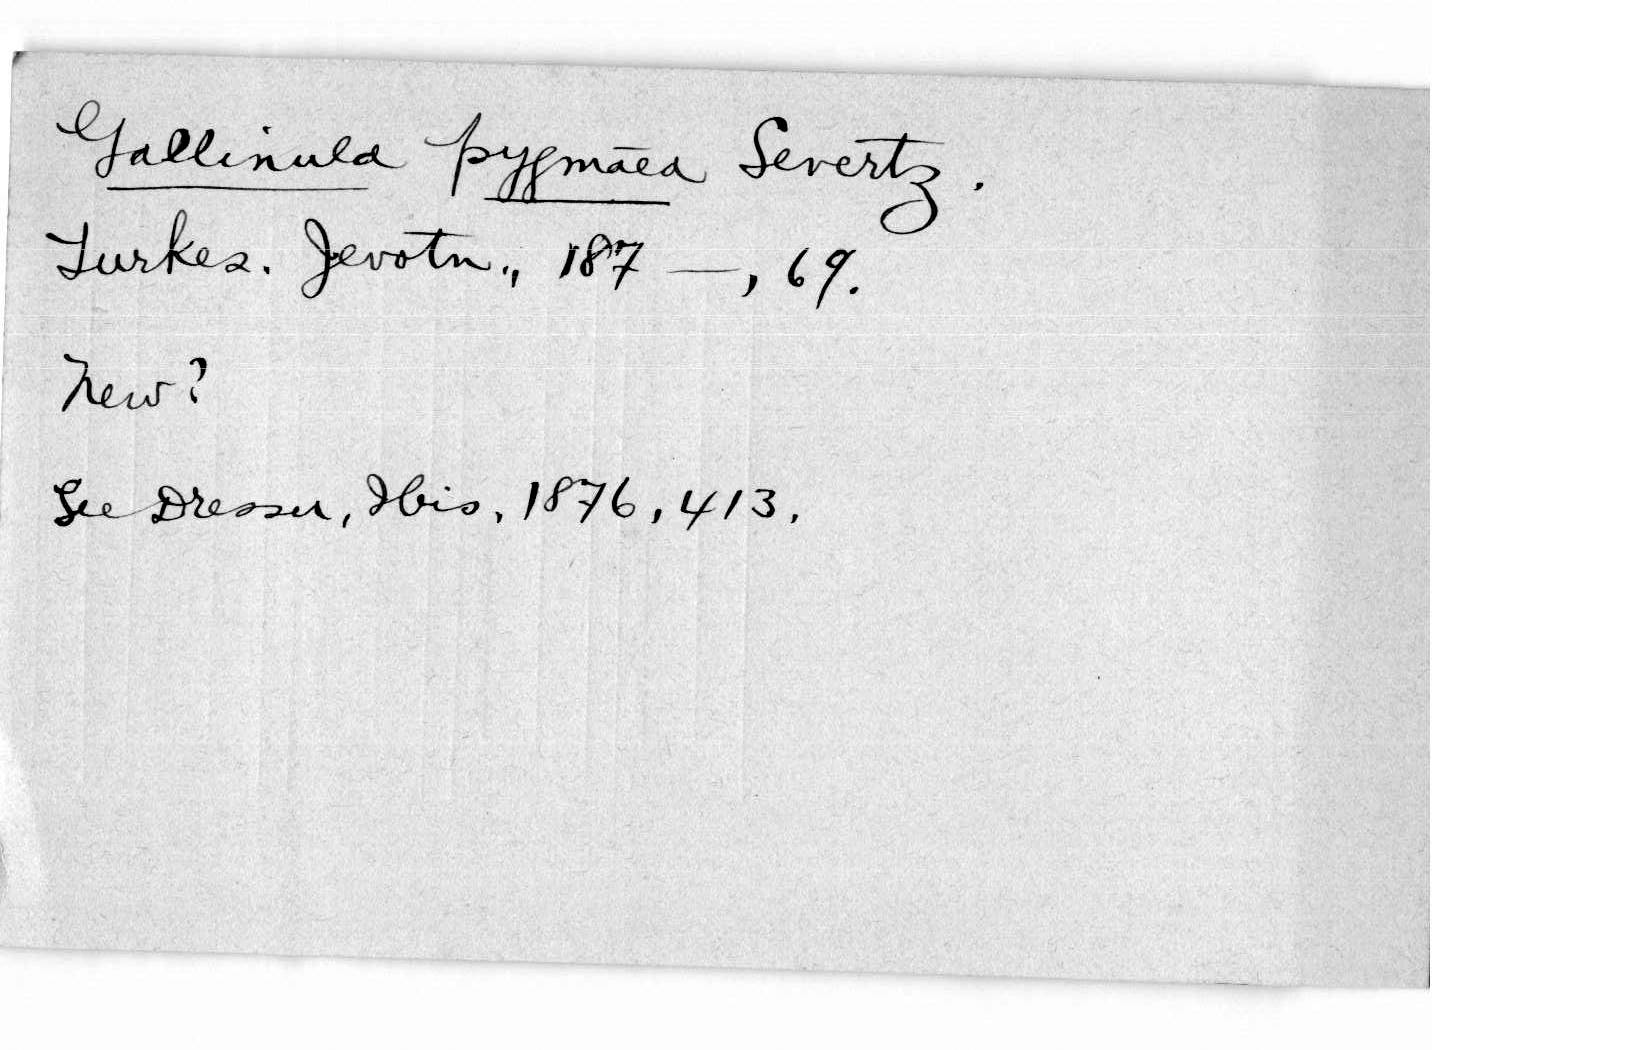 Gallinula pygmaea Severtz.
Turkes. Jevotn., 187 —, 69.
New?
See Dresser, Ibis, 1876, 413.